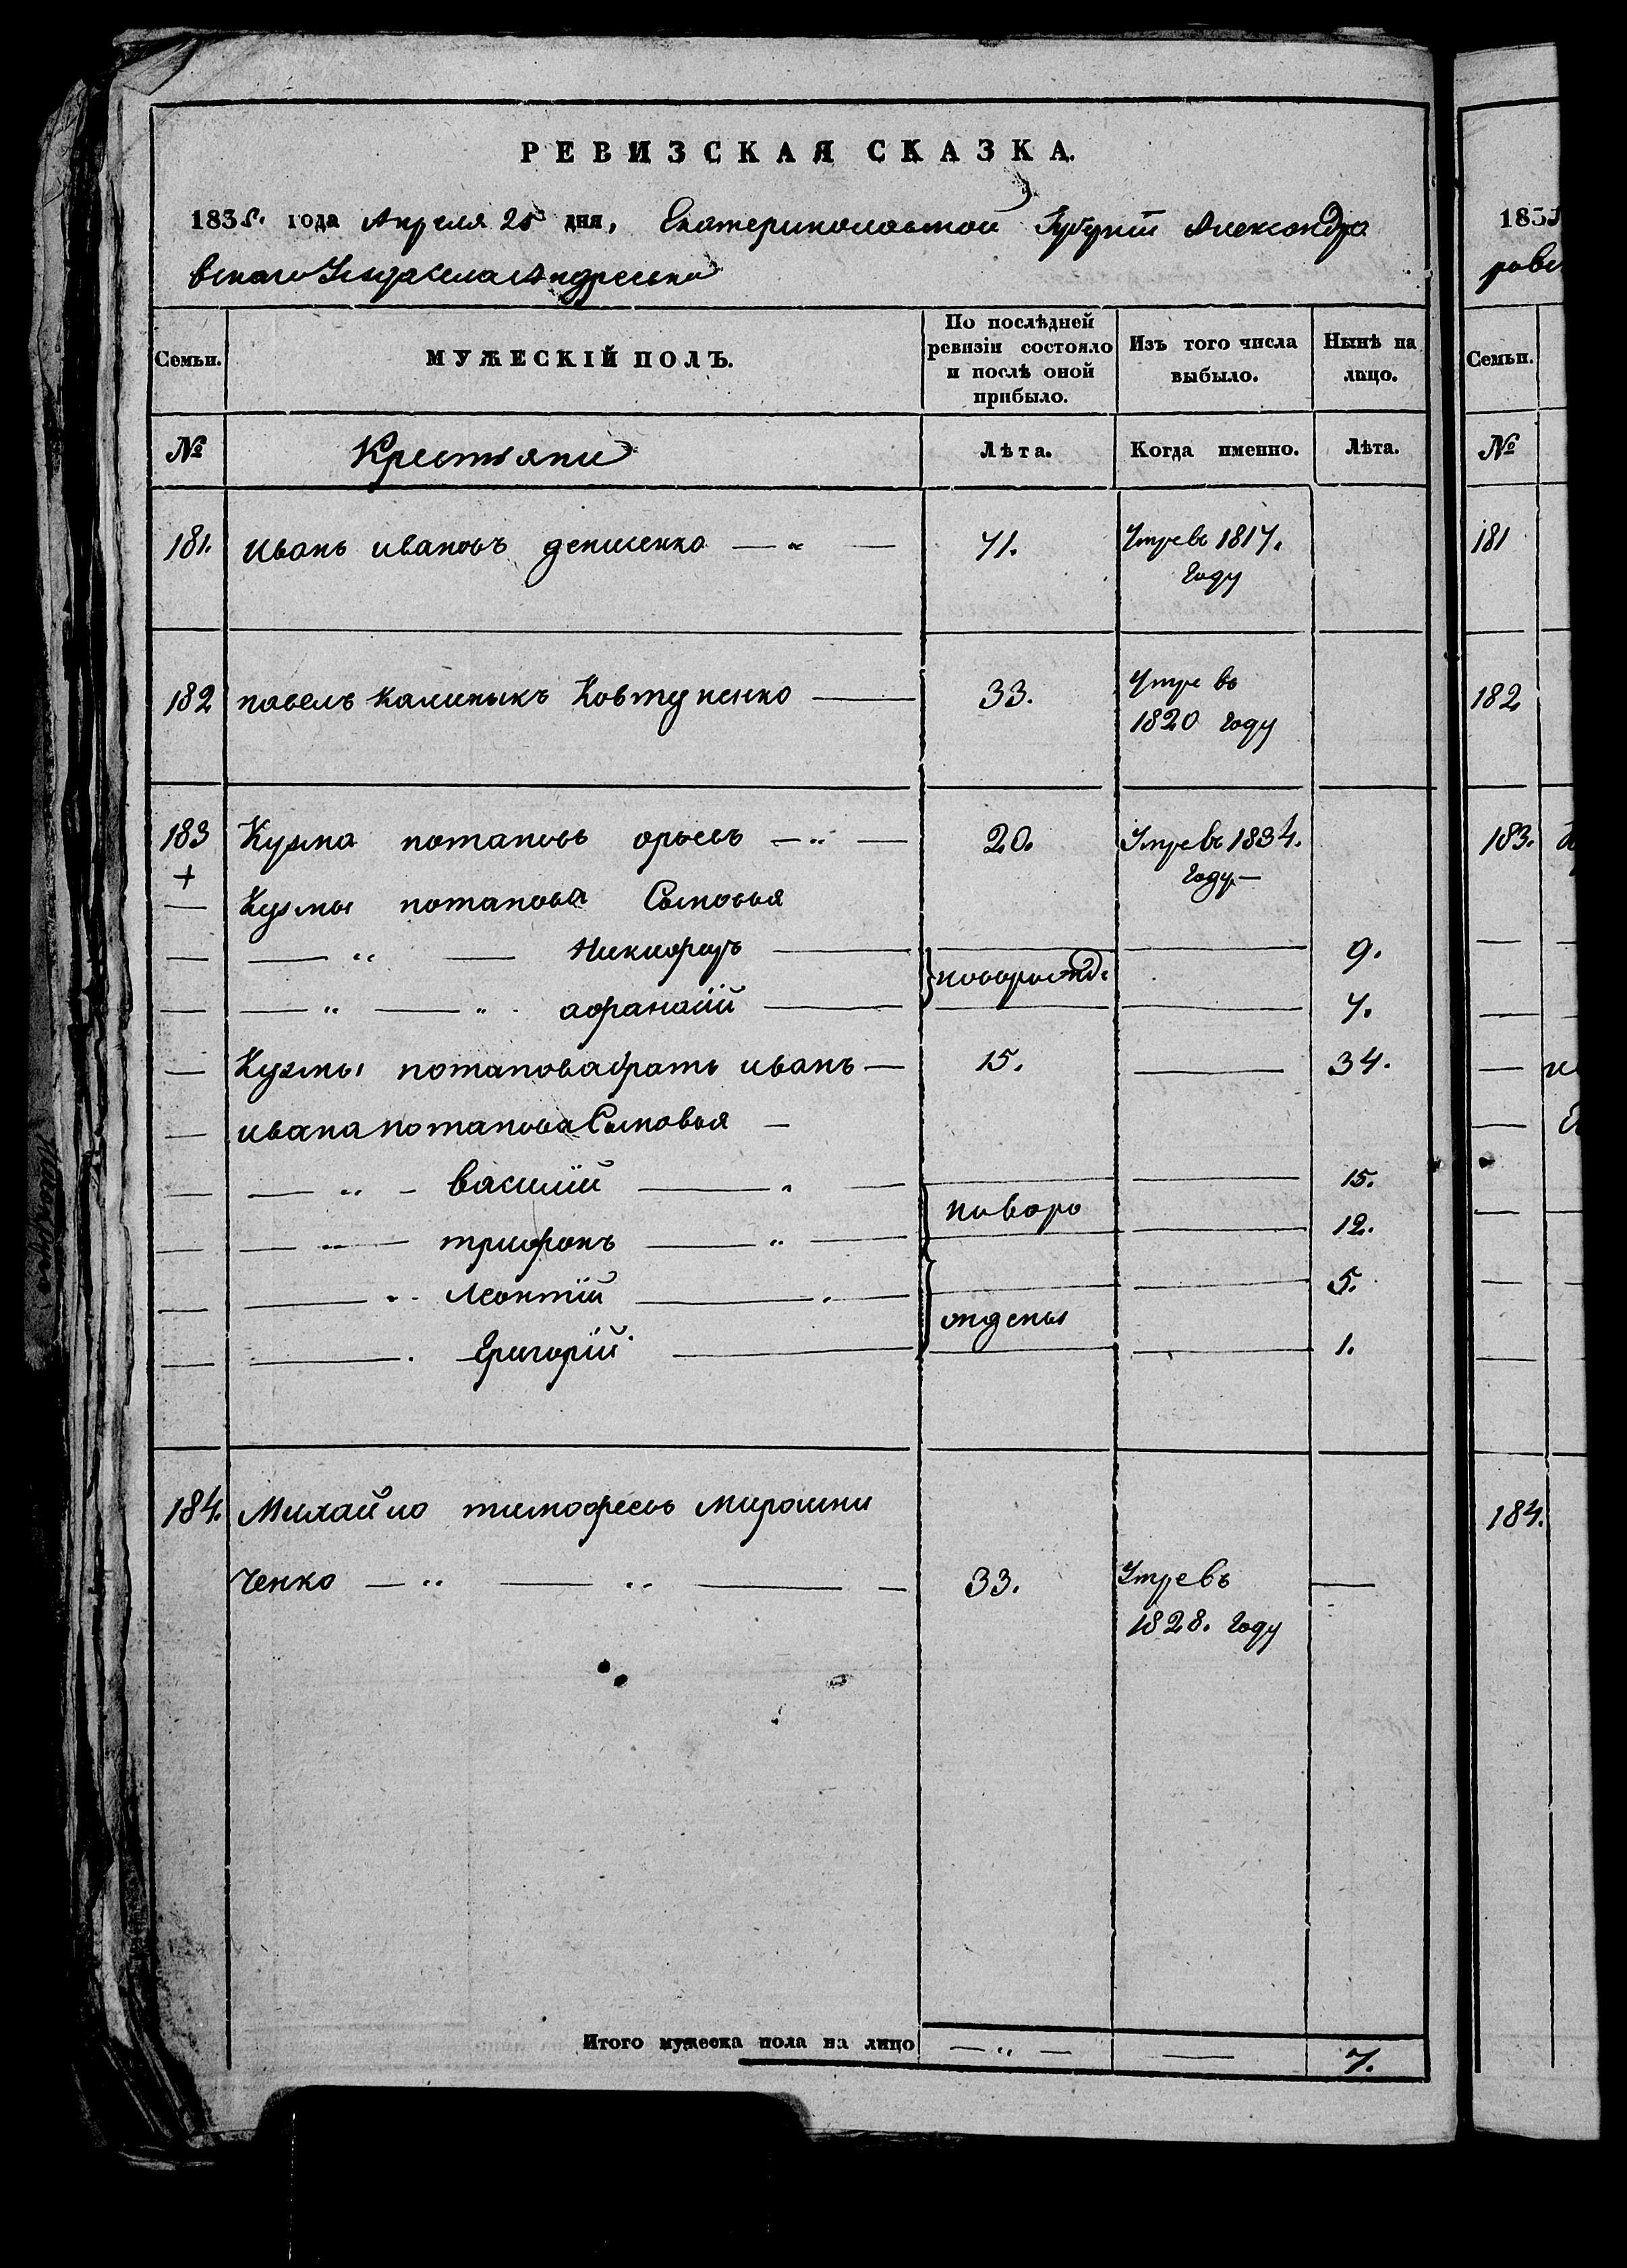 РЕВИЗСКАЯ СКАЗКА.
1835. года Апреля 25 дня, Екатеринославской Губернii Александро
вскаго Уезда села Андреевки
Семьи.
МУЖЕСКІЙ ПОЛЪ.
По послѣдней ревизіи состояло и послѣ оной прибыло.
Изъ того числа выбыло.
Нынѣ на лицо.
№ Крестьяни Лѣта. Когда именно. Лѣта.
181. иванъ ивановъ денисенко — 〃 — 71. Умре въ 1817.
году
182 павелъ калиныкъ Ковтуненко — 33. Умре въ
1820 году
183 Кузма потаповъ орѣевъ — 〃 — 20. Умре въ 1834.
году —
+
— Кузмы потапова Сыновья
— 〃 — Никифоръ — 9.
новорожд.
— 〃 — 〃 афанасій — 7.
— Кузмы потапова братъ иванъ — 15. — 34.
— ивана потапова Сыновья —
— 〃 — василій — 〃 — 15.
новоро
— 〃 — трифонъ — 〃 — 12.
— 〃 Леонтій — 5.
ждены
— Григорій — 1.
184. Михайло тимофеевъ Мирошни
ченко — 〃 — 〃 — 33. Умре въ —
1828. году
Итого мужеска пола на лицо — 〃 — — 7.
183
рове
Семьи.
№
181
182
183.
184.